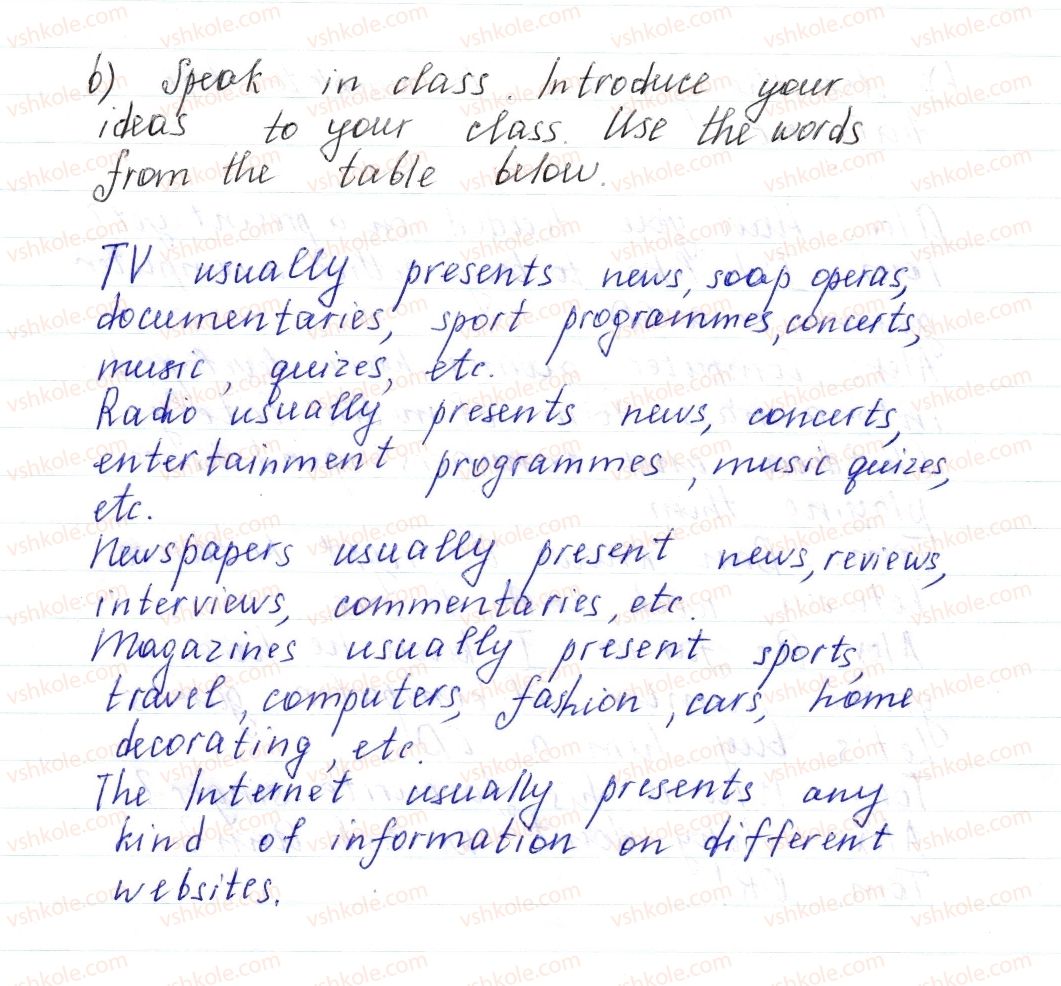 b) Speak in class. Introduce your
ideas to your class. Use the words
from the table below.
TV usually presents news, soap operas,
documentaries, sport programmes, concerts,
music, quizes, etc.
Radio usually presents news, concerts,
entertainment programmes, music quizes,
etc.
Newspapers usually present news, reviews,
interviews, commentaries, etc.
Magazines usually present sports,
travel, computers, fashion, cars, home
decorating, etc.
The Internet usually presents any
kind of information on different
websites.
vshkole.com